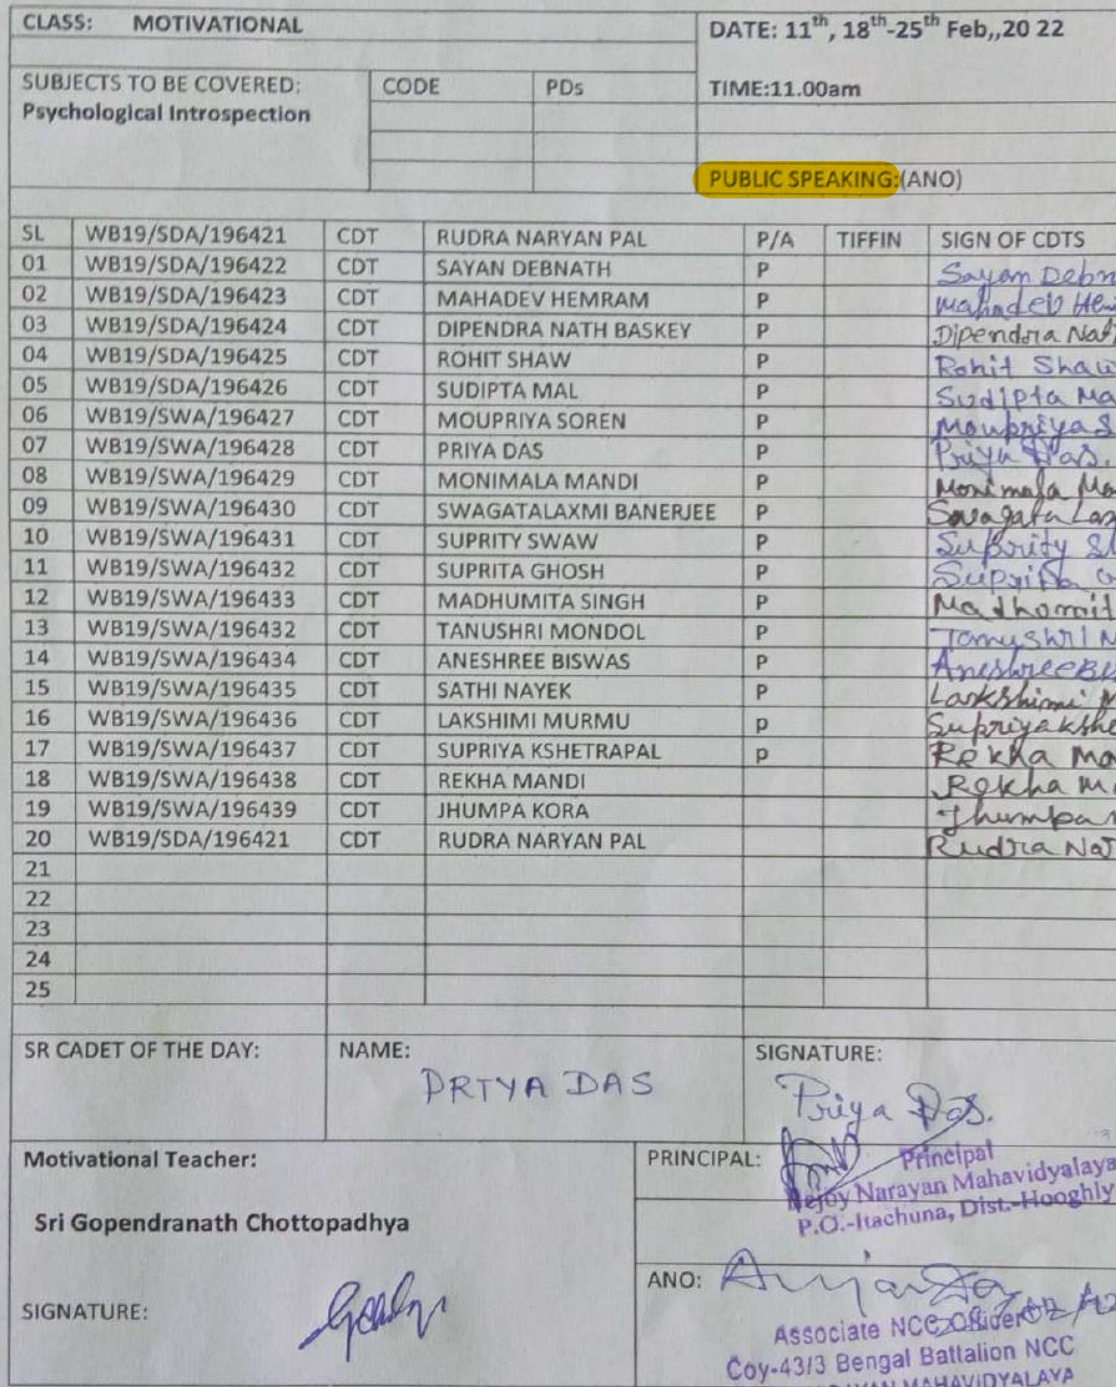 CLASS: MOTIVATIONAL
DATE: 11th, 18th-25th Feb,,20 22
SUBJECTS TO BE COVERED: CODE PDs TIME:11.00am
Psychological Introspection
PUBLIC SPEAKING:(ANO)
SL WB19/SDA/196421 CDT RUDRA NARYAN PAL P/A TIFFIN SIGN OF CDTS
01 WB19/SDA/196422 CDT SAYAN DEBNATH P Sayan Debn
02 WB19/SDA/196423 CDT MAHADEV HEMRAM P Mahadev Hem
03 WB19/SDA/196424 CDT DIPENDRA NATH BASKEY P Dipendra Nat
04 WB19/SDA/196425 CDT ROHIT SHAW P Rohit Shaw
05 WB19/SDA/196426 CDT SUDIPTA MAL P Sudipta Ma
06 WB19/SWA/196427 CDT MOUPRIYA SOREN P Moupriya S
07 WB19/SWA/196428 CDT PRIYA DAS P Priya Das.
08 WB19/SWA/196429 CDT MONIMALA MANDI P Monimala Ma
09 WB19/SWA/196430 CDT SWAGATALAXMI BANERJEE P Swagata Lax
10 WB19/SWA/196431 CDT SUPRITY SWAW P Suprity S
11 WB19/SWA/196432 CDT SUPRITA GHOSH P Suprita G
12 WB19/SWA/196433 CDT MADHUMITA SINGH P Madhomit
13 WB19/SWA/196432 CDT TANUSHRI MONDOL P Tanushri M
14 WB19/SWA/196434 CDT ANESHREE BISWAS P Aneshree Bis
15 WB19/SWA/196435 CDT SATHI NAYEK P Larkshimi M
16 WB19/SWA/196436 CDT LAKSHIMI MURMU p Supriya kshe
17 WB19/SWA/196437 CDT SUPRIYA KSHETRAPAL p Rekha Ma
18 WB19/SWA/196438 CDT REKHA MANDI Rekha M
19 WB19/SWA/196439 CDT JHUMPA KORA Jhumpa
20 WB19/SDA/196421 CDT RUDRA NARYAN PAL Rudra Nar
21
22
23
24
25
SR CADET OF THE DAY: NAME: SIGNATURE:
PRIYA DAS
Priya Das.
Motivational Teacher: PRINCIPAL:
Principal
Bejoy Narayan Mahavidyalaya
P.O.-Itachuna, Dist.-Hooghly
Sri Gopendranath Chottopadhya
ANO:
SIGNATURE:
Associate NCC Officer
Coy-43/3 Bengal Battalion NCC
NARAYAN MAHAVIDYALAYA